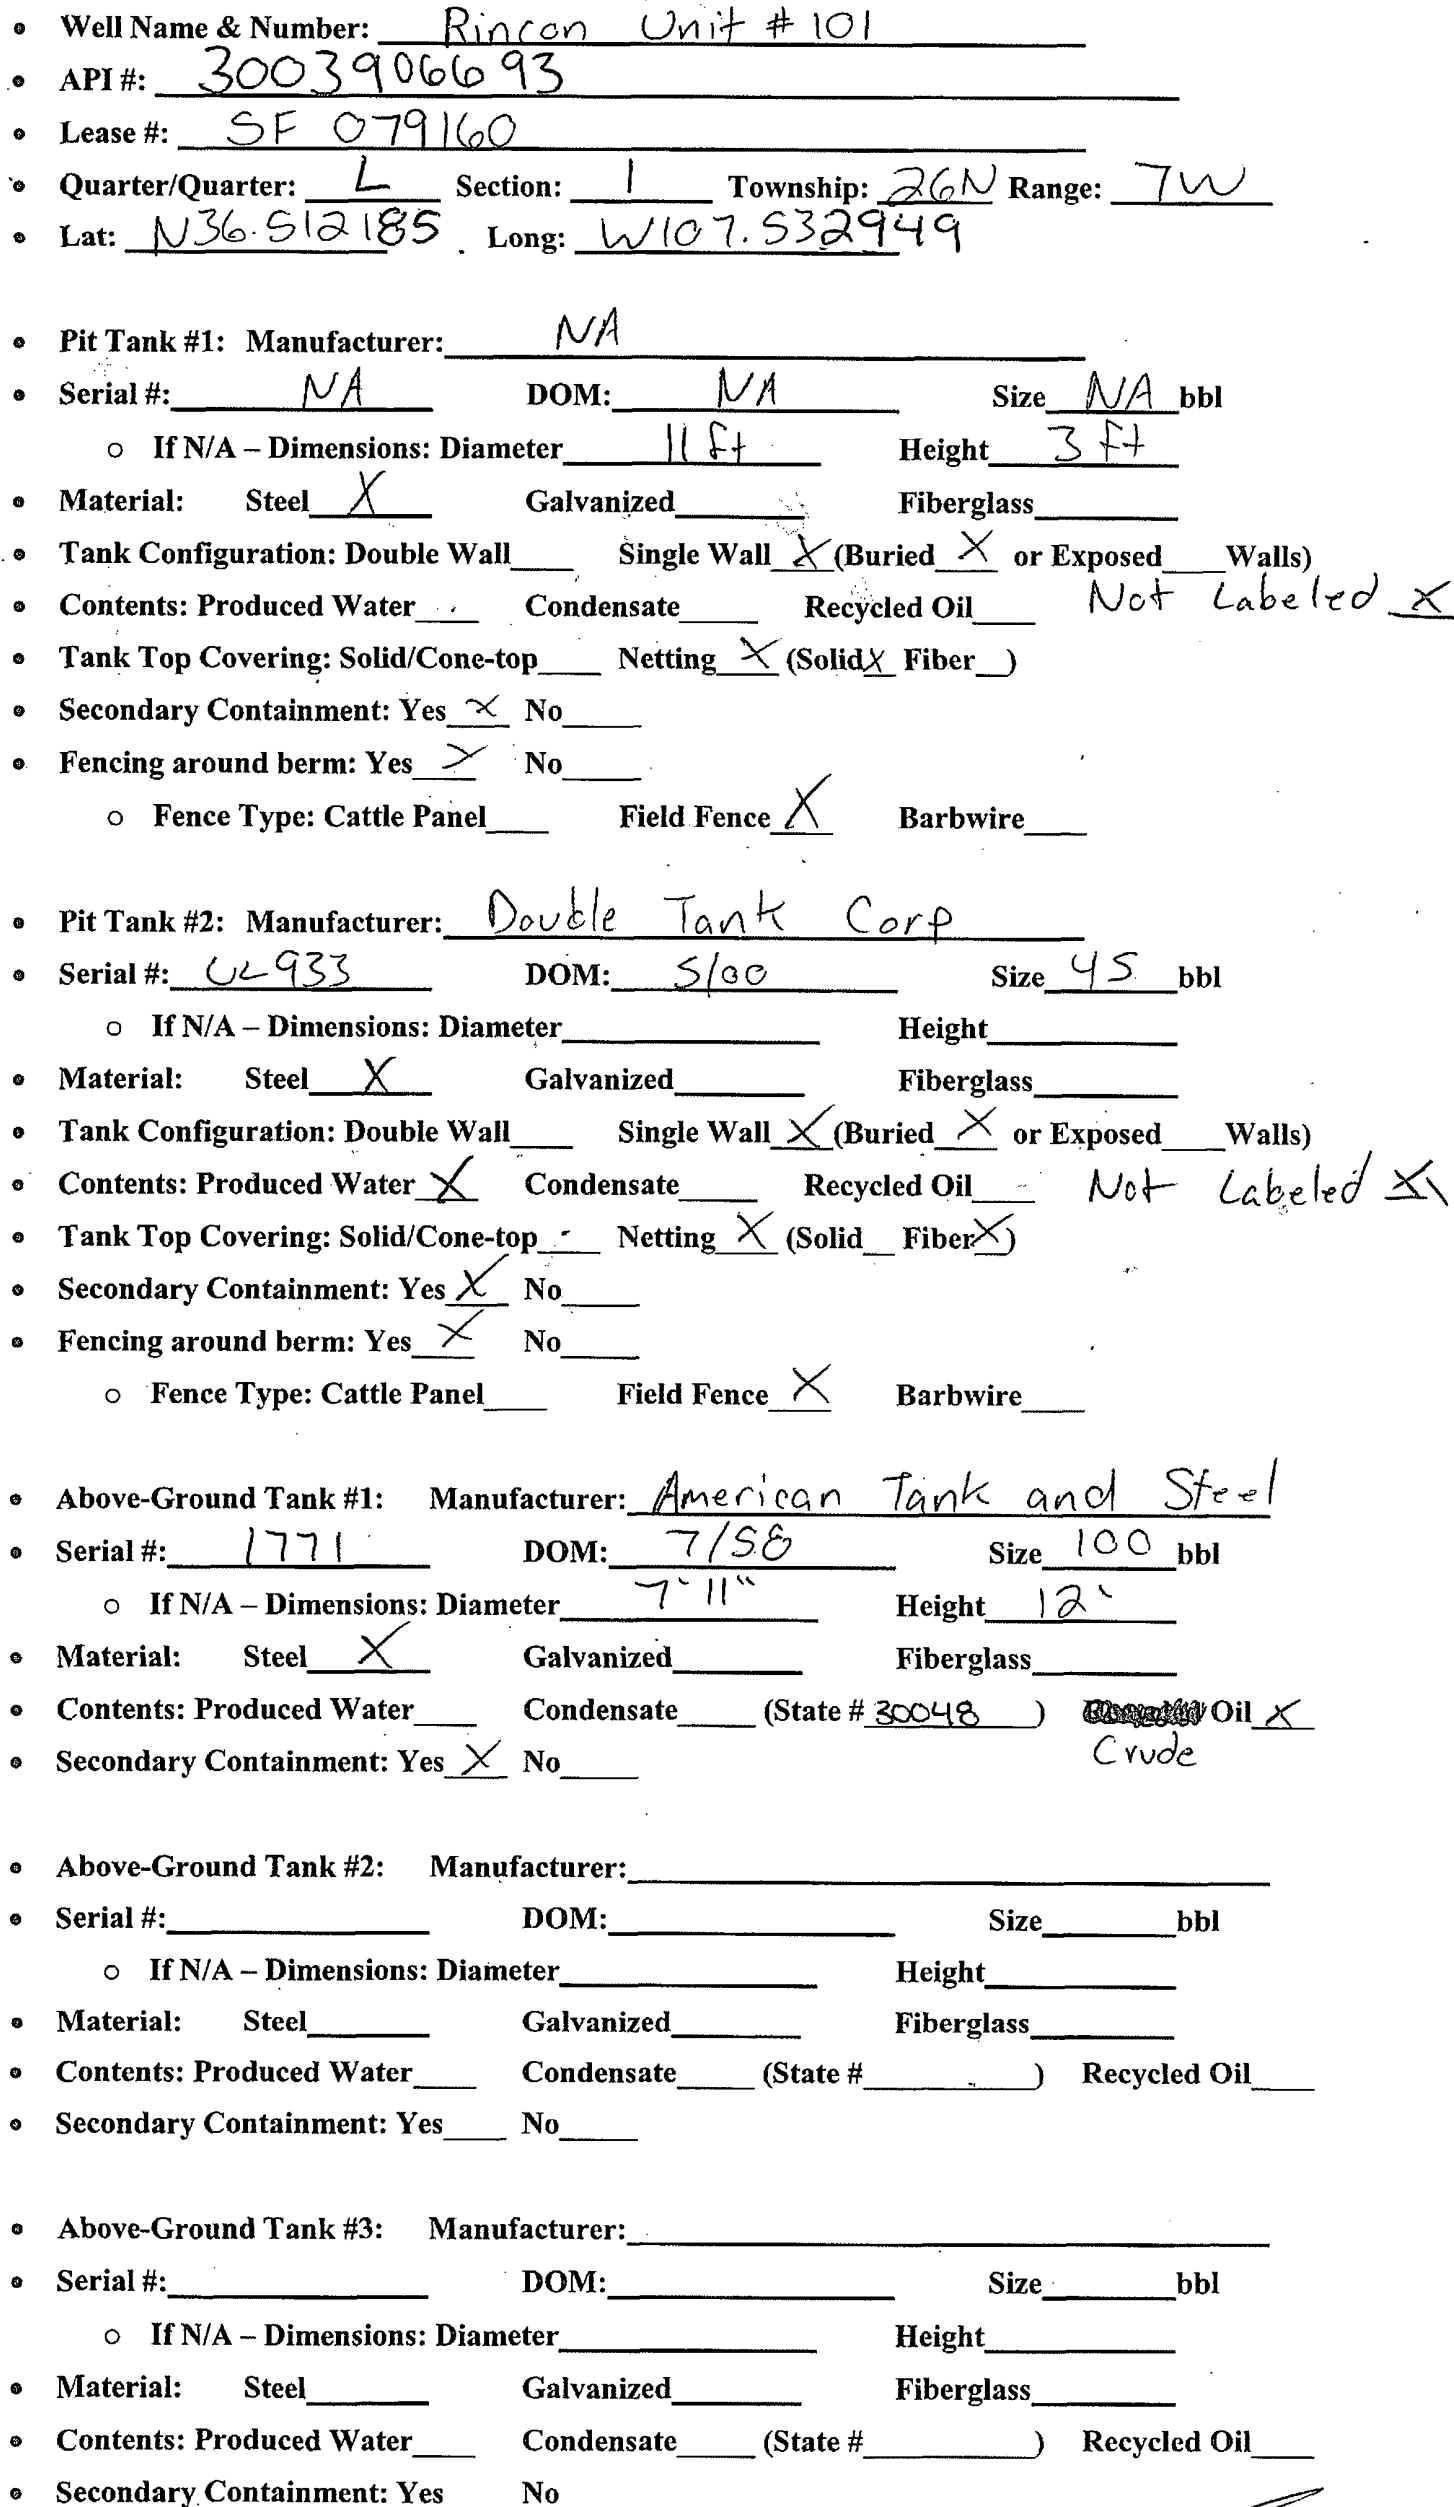 • Well Name & Number: Rincon Unit # 101
• API #: 3003906693
• Lease #: SF 079160
• Quarter/Quarter: L Section: 1 Township: 26N Range: 7W
• Lat: N36.512185 Long: W107.532949
• Pit Tank #1: Manufacturer: NA
• Serial #: NA DOM: NA Size NA bbl
○ If N/A – Dimensions: Diameter 11 ft Height 3 ft
• Material: Steel X Galvanized____ Fiberglass____
• Tank Configuration: Double Wall____ Single Wall X (Buried X or Exposed____Walls)
• Contents: Produced Water____ Condensate____ Recycled Oil____ Not Labeled X
• Tank Top Covering: Solid/Cone-top____ Netting X (Solid X Fiber__)
• Secondary Containment: Yes X No____
• Fencing around berm: Yes X No____
○ Fence Type: Cattle Panel____ Field Fence X Barbwire____
• Pit Tank #2: Manufacturer: Double Tank Corp
• Serial #: UL933 DOM: 5/00 Size 45 bbl
○ If N/A – Dimensions: Diameter____ Height____
• Material: Steel X Galvanized____ Fiberglass____
• Tank Configuration: Double Wall____ Single Wall X (Buried X or Exposed____Walls)
• Contents: Produced Water X Condensate____ Recycled Oil____ Not Labeled X
• Tank Top Covering: Solid/Cone-top____ Netting X (Solid__ Fiber X)
• Secondary Containment: Yes X No____
• Fencing around berm: Yes X No____
○ Fence Type: Cattle Panel____ Field Fence X Barbwire____
• Above-Ground Tank #1: Manufacturer: American Tank and Steel
• Serial #: 1771 DOM: 7/58 Size 100 bbl
○ If N/A – Dimensions: Diameter 7'11" Height 12'
• Material: Steel X Galvanized____ Fiberglass____
• Contents: Produced Water____ Condensate____ (State # 30048 ) Oil X
Crude
• Secondary Containment: Yes X No____
• Above-Ground Tank #2: Manufacturer:____
• Serial #:____ DOM:____ Size____bbl
○ If N/A – Dimensions: Diameter____ Height____
• Material: Steel____ Galvanized____ Fiberglass____
• Contents: Produced Water____ Condensate____ (State #____) Recycled Oil____
• Secondary Containment: Yes____ No____
• Above-Ground Tank #3: Manufacturer:____
• Serial #:____ DOM:____ Size____bbl
○ If N/A – Dimensions: Diameter____ Height____
• Material: Steel____ Galvanized____ Fiberglass____
• Contents: Produced Water____ Condensate____ (State #____) Recycled Oil____
• Secondary Containment: Yes No